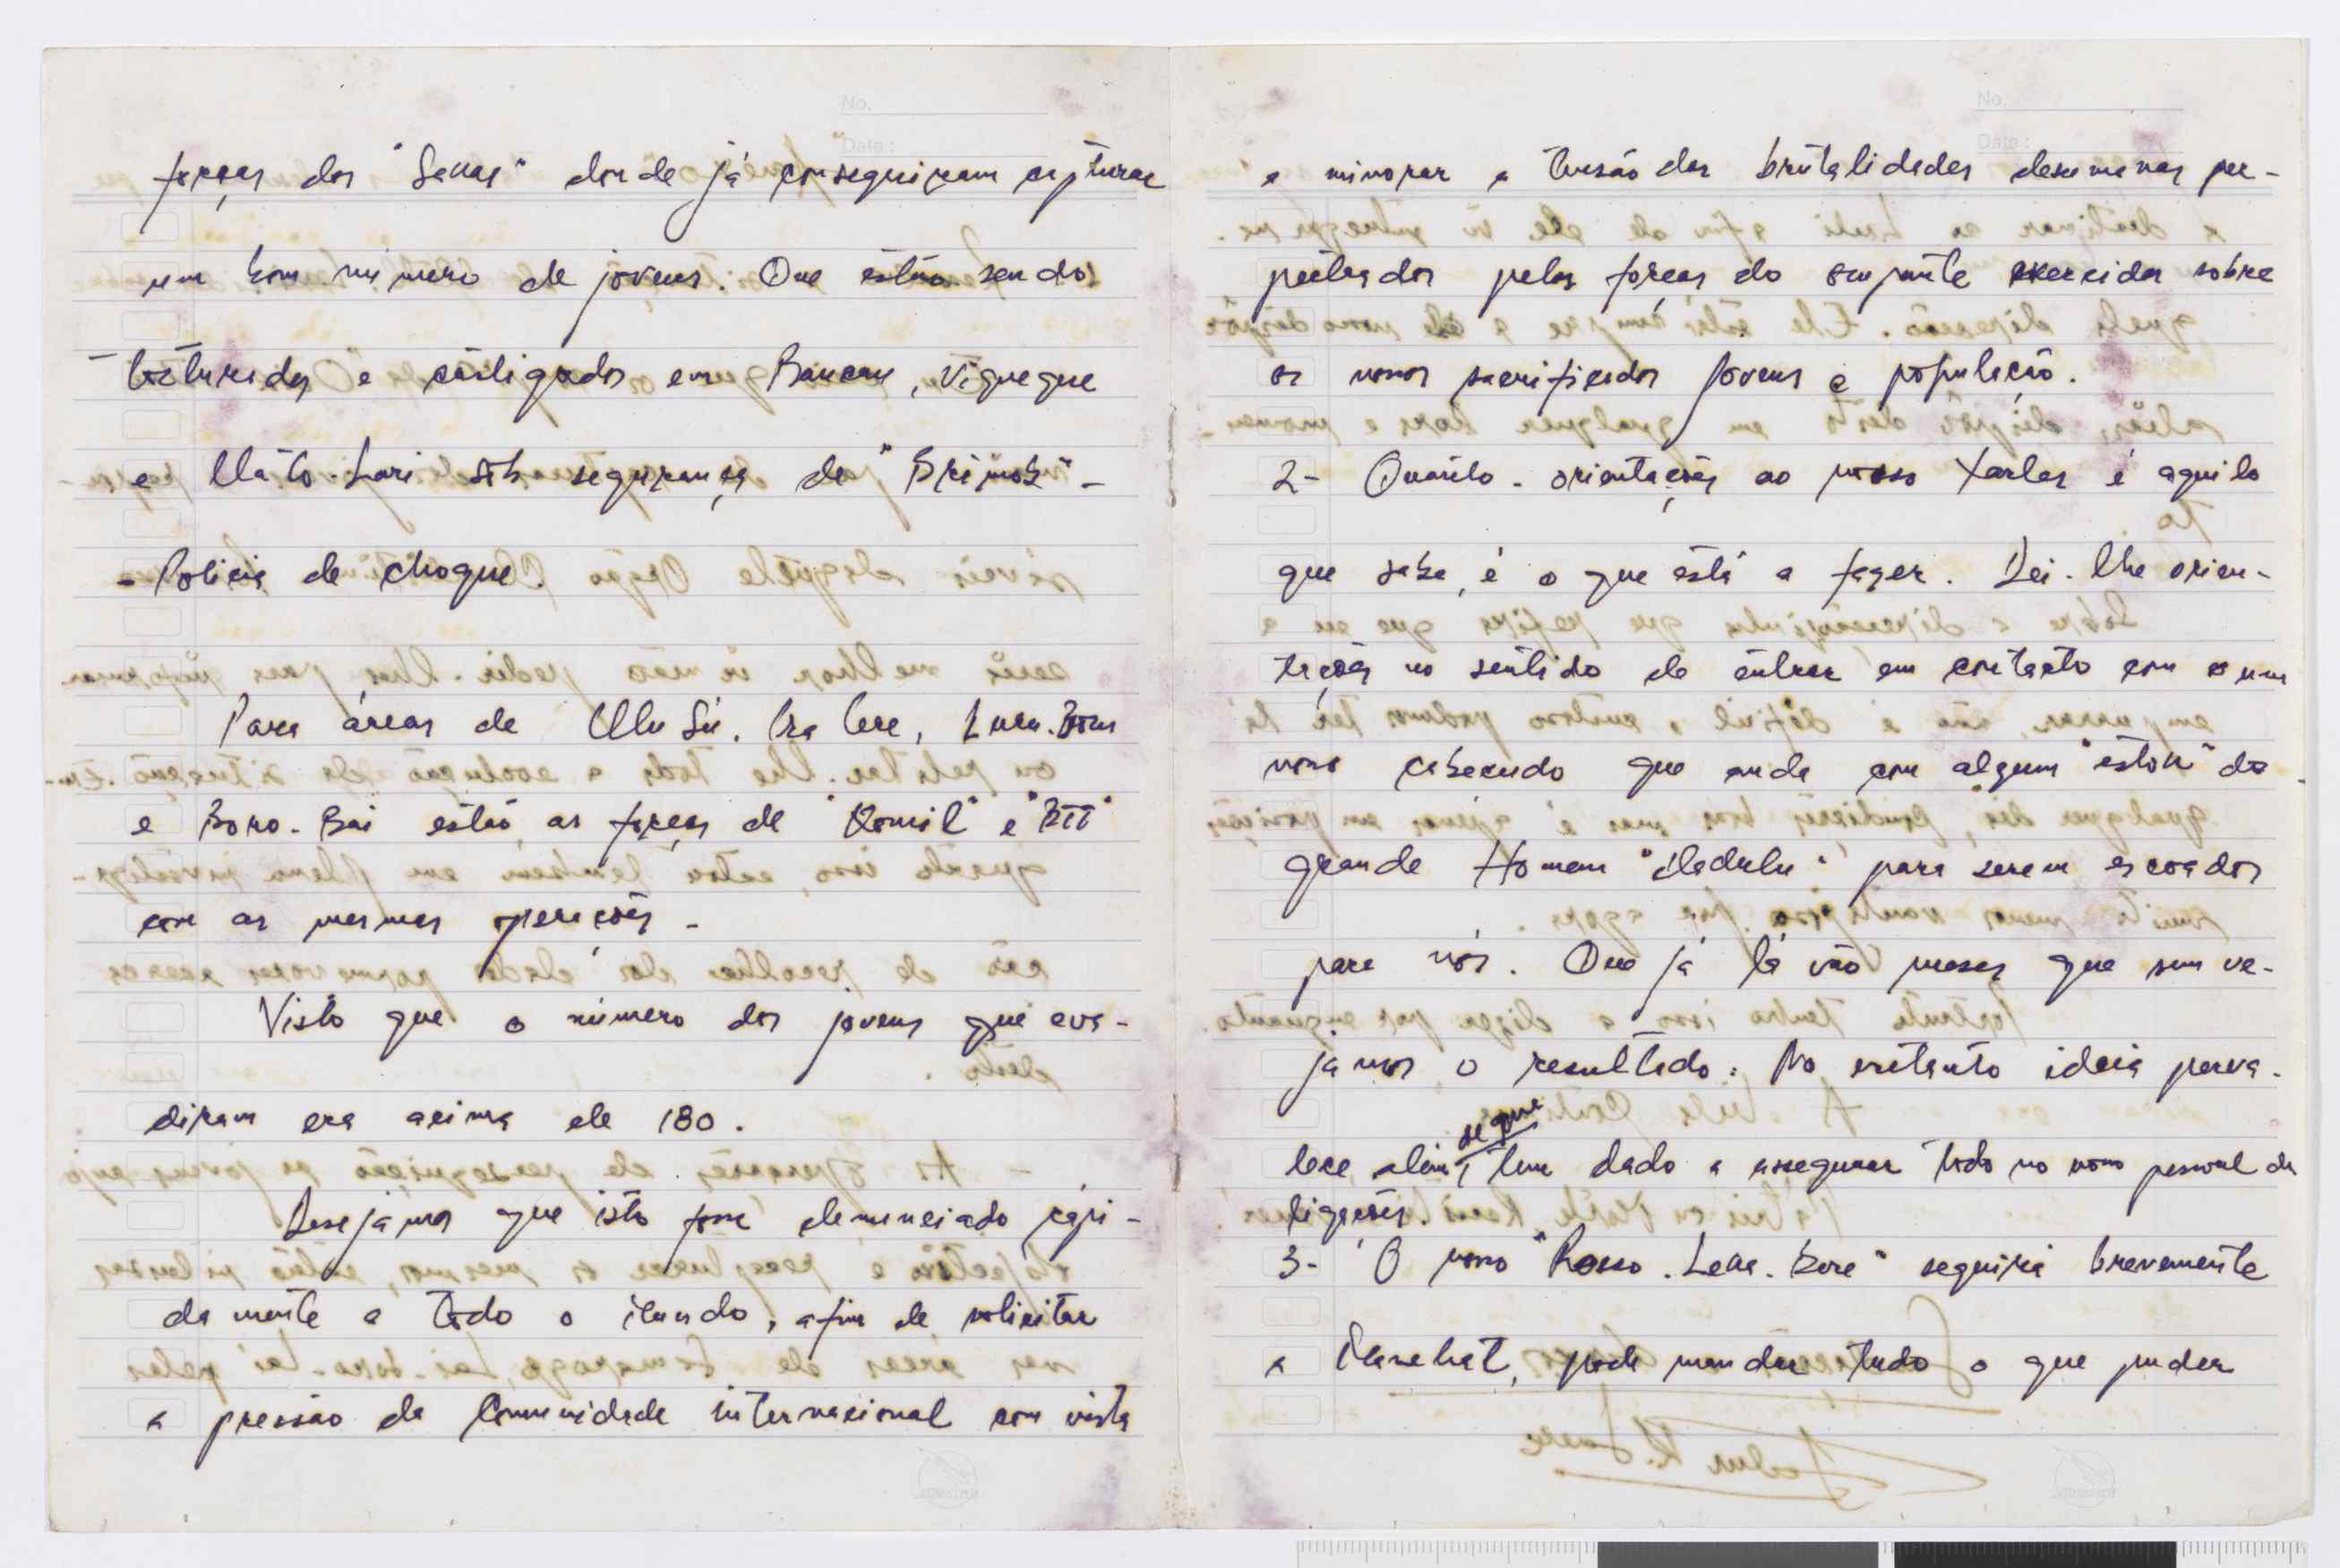 No.
Date :
forças dos "Savas" donde já conseguiram capturar
um bom número de jovens. Que estão sendo
torturados e castigados em Baucau, Viqueque
e Uato-Lari sob segurança de "Brimob" -
- Policia de choque.
Para áreas de Ulu Su, Ira Lere,
e Boro-Bai estão as forças de "Komil" e "BTT"
com as mesmas operações -
Visto que o número dos jovens que eva-
diram era acima de 180.
Desejamos que isto fosse denunciado rápi-
da mente a todo o Mundo, afim de solicitar
a pressão da Comunidade internacional com vista
No.
Date :
a minorar a tensão das brutalidades desumanas per-
petradas pelas forças do ocupante exercidas sobre
os nossos sacrificados Jovens e população.
2- Quanto orientações ao nosso Xarlas é aquilo
que sabe, é o que está a fazer. Dei-lhe orien-
tações no sentido de entrar em contacto com o um
nosso cabecudo que anda com algum "estok" do
grande Homem "Maduku" para serem escoados
para nós. Que já lá vão meses que sem ve-
jamos o resultado. No entanto ideia preva-
lece além segue tem dado a assegurar todo no nosso pessoal da
ligações.
3- O nosso "Rosso. Leva. bere" seguirá brevemente
a Manehat, pode mandar tudo o que puder